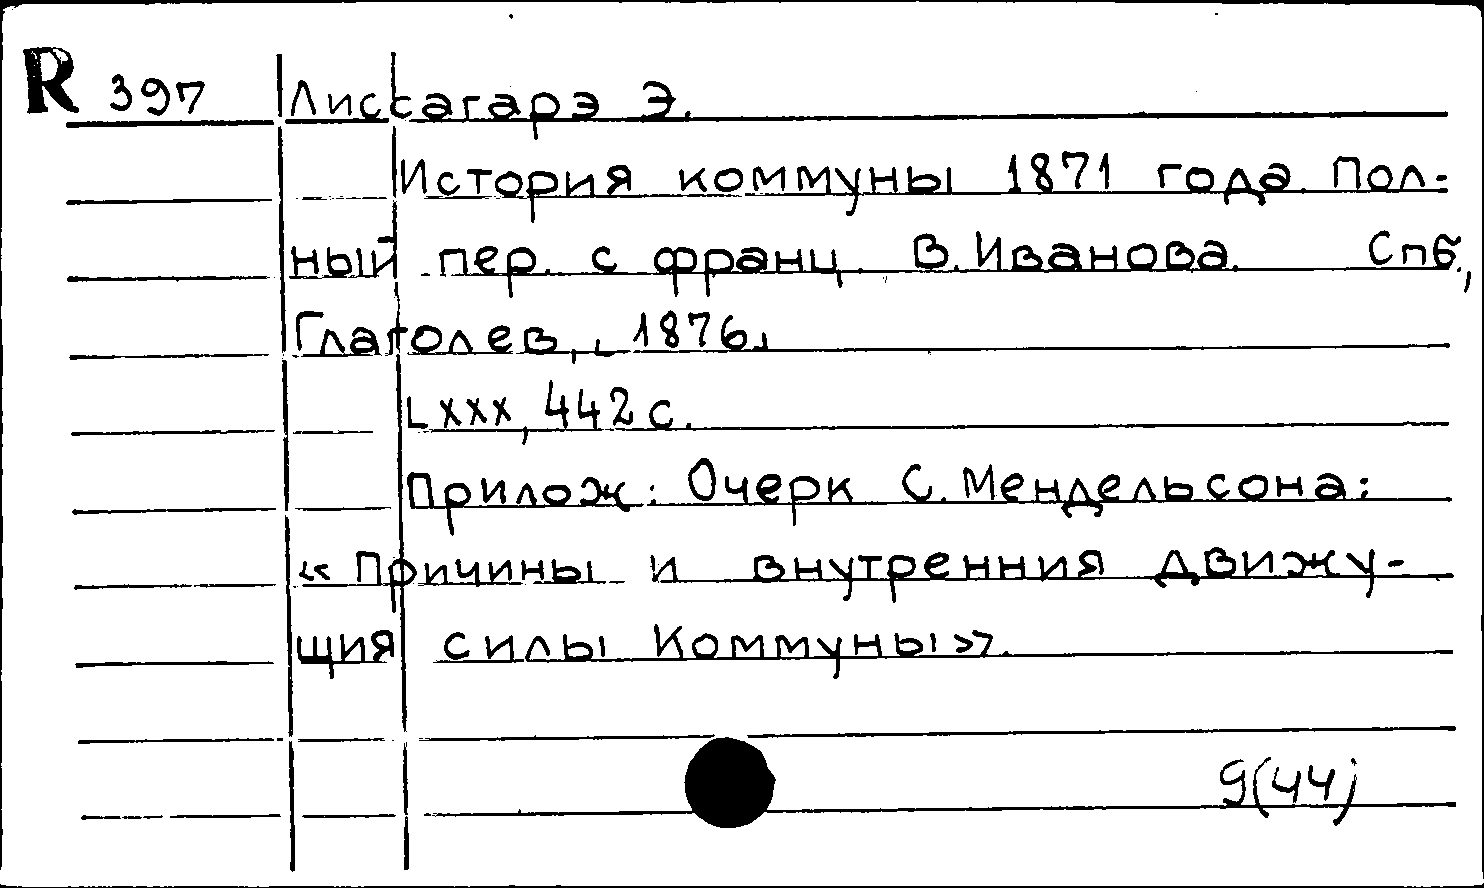 R 397 Лиссагарэ Э.
История коммуны 1871 года. Пол-
ный пер. с франц. В. Иванова. Спб.,
Глаголев, [1876]
LXXX, 442 с.
Прилож.: Очерк С. Мендельсона:
«Причины и внутренния движу-
щия силы Коммуны».
9(44)